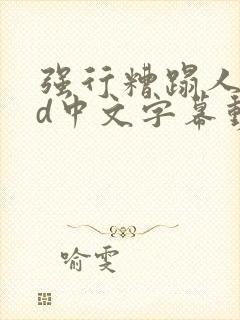 强行糟蹋人
d中文字幕
喻雯